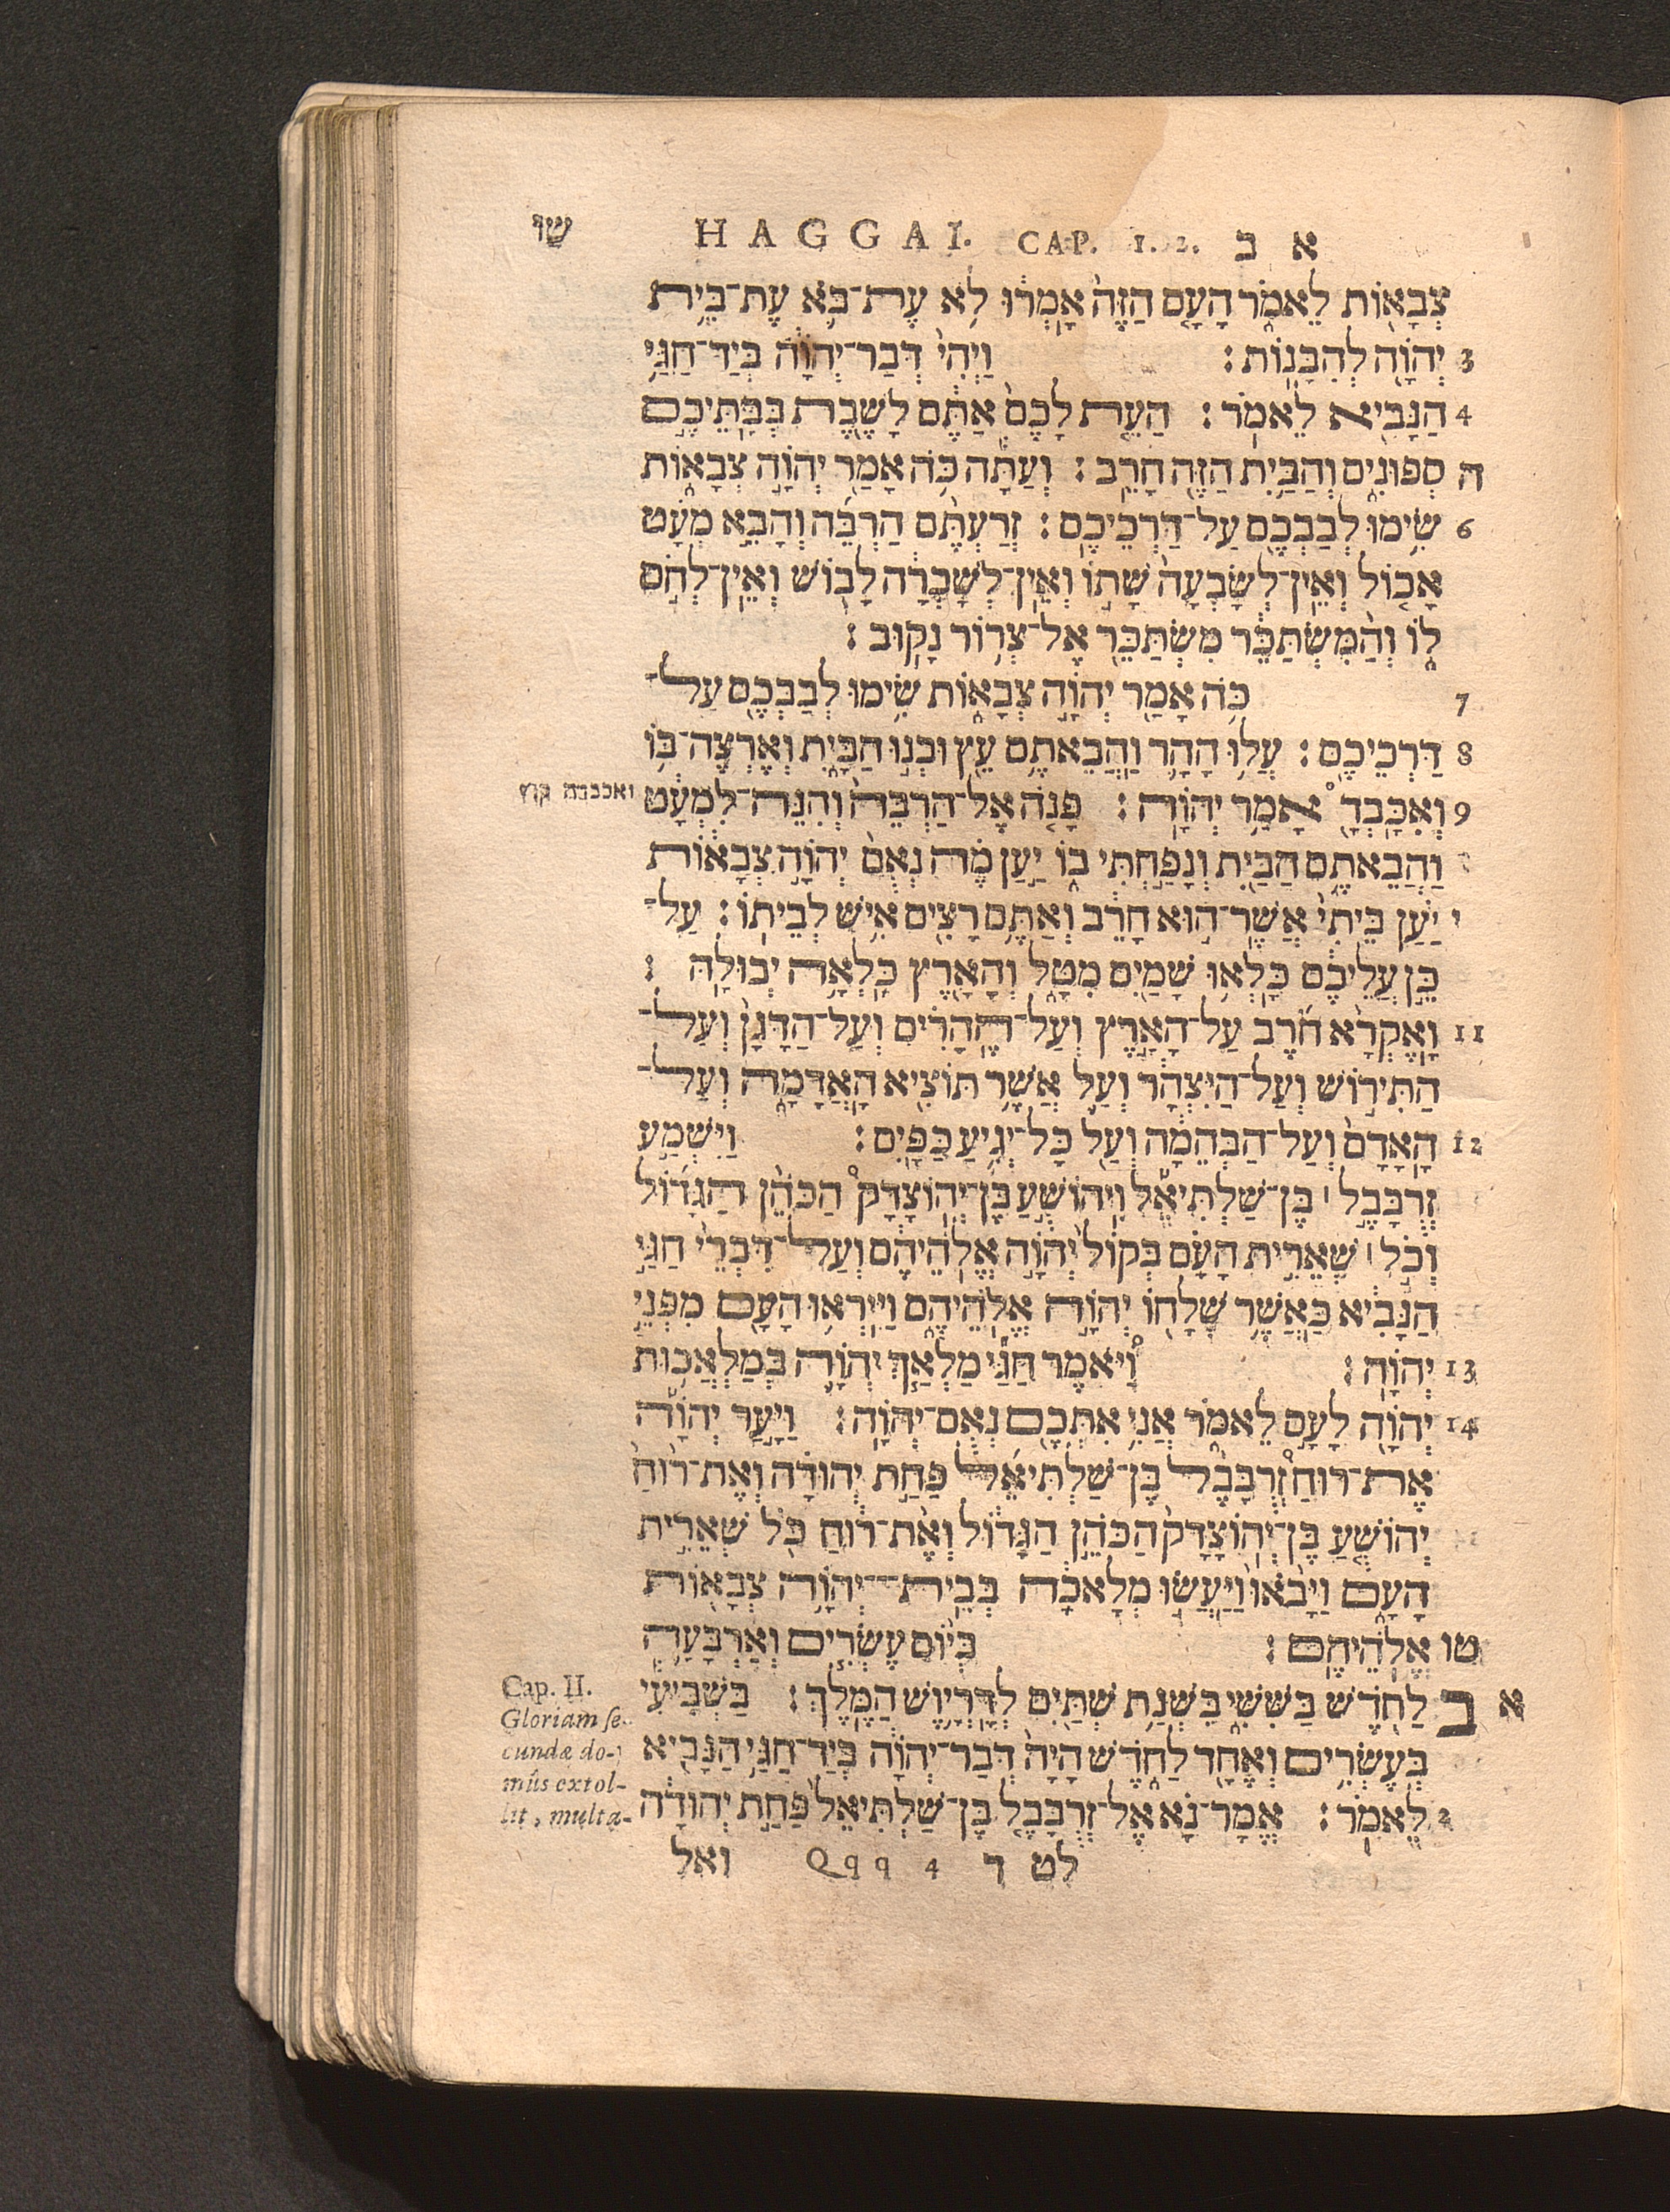 שו HAGGAI. CAP. 1.2. א ב
צְבָא֖וֹת לֵאמֹ֑ר הָעָ֤ם הַזֶּה֙ אָֽמְר֔וּ לֹ֥א עֶת־בֹּ֛א עֶת־בֵּ֥ית
3 יְהוָ֖ה לְהִבָּנֽוֹת׃ וַֽיְהִי֙ דְּבַר־יְהוָ֔ה בְּיַד־חַגַּ֥י
4 הַנָּבִ֖יא לֵאמֹֽר׃ הַעֵ֤ת לָכֶם֙ אַתֶּ֔ם לָשֶׁ֖בֶת בְּבָֽתֵּיכֶ֣ם
ה סְפוּנִ֑ים וְהַבַּ֥יִת הַזֶּ֖ה חָרֵֽב׃ וְעַתָּ֕ה כֹּ֥ה אָמַ֖ר יְהוָ֣ה צְבָא֑וֹת
6 שִׂ֥ימוּ לְבַבְכֶ֖ם עַל־דַּרְכֵיכֶֽם׃ זְרַעְתֶּ֨ם הַרְבֵּ֜ה וְהָבֵ֣א מְעָ֗ט
אָכ֤וֹל וְאֵין־לְשָׂבְעָה֙ שָׁת֣וֹ וְאֵין־לְשָׁכְרָ֔ה לָב֖וֹשׁ וְאֵין־לְחֹ֣ם
ל֑וֹ וְהַ֨מִּשְׂתַּכֵּ֔ר מִשְׂתַּכֵּ֖ר אֶל־צְר֥וֹר נָקֽוּב׃
7 כֹּ֥ה אָמַ֖ר יְהוָ֣ה צְבָא֑וֹת שִׂ֥ימוּ לְבַבְכֶ֖ם עַל־
8 דַּרְכֵיכֶֽם׃ עֲל֥וּ הָהָ֛ר וַהֲבֵאתֶ֥ם עֵ֖ץ וּבְנ֣וּ הַבָּ֑יִת וְאֶרְצֶה־בּ֥וֹ
9 וְאֶכָּבְדָ֖ אָמַ֥ר יְהוָֽה׃ פָּנֹ֤ה אֶל־הַרְבֵּה֙ וְהִנֵּ֣ה לִמְעָ֔ט
ואכבדה קרי
וַהֲבֵאתֶ֥ם הַבַּ֖יִת וְנָפַ֣חְתִּי ב֑וֹ יַ֣עַן מֶ֗ה נְאֻם֙ יְהוָ֣ה צְבָא֔וֹת
י יַ֗עַן בֵּיתִי֙ אֲשֶׁר־ה֣וּא חָרֵ֔ב וְאַתֶּ֥ם רָצִ֖ים אִ֥ישׁ לְבֵיתֽוֹ׃ עַל־
כֵּ֣ן עֲלֵיכֶ֔ם כָּלְא֥וּ שָׁמַ֖יִם מִטָּ֑ל וְהָאָ֖רֶץ כָּלְאָ֥ה יְבוּלָֽהּ׃
11 וָאֶקְרָ֨א חֹ֜רֶב עַל־הָאָ֣רֶץ וְעַל־הֶהָרִ֗ים וְעַל־הַדָּגָן֙ וְעַל־
הַתִּיר֣וֹשׁ וְעַל־הַיִּצְהָ֔ר וְעַ֛ל אֲשֶׁ֥ר תּוֹצִ֖יא הָאֲדָמָ֑ה וְעַל־
12 הָֽאָדָם֙ וְעַל־הַבְּהֵמָ֔ה וְעַ֖ל כָּל־יְגִ֥יעַ כַּפָּֽיִם׃ וַיִּשְׁמַ֣ע
זְרֻבָּבֶ֣ל ׀ בֶּֽן־שַׁלְתִּיאֵ֡ל וִיהוֹשֻׁ֣עַ בֶּן־יְהוֹצָדָק֩ הַכֹּהֵ֨ן הַגָּד֜וֹל
וְכֹ֣ל ׀ שְׁאֵרִ֣ית הָעָ֗ם בְּקוֹל֙ יְהוָ֣ה אֱלֹֽהֵיהֶ֔ם וְעַל־דִּבְרֵי֙ חַגַּ֣י
הַנָּבִ֔יא כַּאֲשֶׁ֥ר שְׁלָח֖וֹ יְהוָ֣ה אֱלֹהֵיהֶ֑ם וַיִּֽירְא֥וּ הָעָ֖ם מִפְּנֵ֥י
13 יְהוָֽה׃ וַ֠יֹּאמֶר חַגַּ֞י מַלְאַ֧ךְ יְהוָ֛ה בְּמַלְאֲכ֥וּת
14 יְהוָ֖ה לָעָ֣ם לֵאמֹ֑ר אֲנִ֥י אִתְּכֶ֖ם נְאֻם־יְהוָֽה׃ וַיָּ֣עַר יְהוָ֡ה
אֶת־רוּחַ֩ זְרֻבָּבֶ֨ל בֶּן־שַׁלְתִּיאֵ֜ל פַּחַ֣ת יְהוּדָ֗ה וְאֶת־ר֨וּחַ֙
יְהוֹשֻׁ֤עַ בֶּן־יְהוֹצָדָק֙ הַכֹּהֵ֣ן הַגָּד֔וֹל וְֽאֶת־ר֔וּחַ כֹּ֖ל שְׁאֵרִ֣ית
הָעָ֑ם וַיָּבֹ֨אוּ֙ וַיַּעֲשׂ֣וּ מְלָאכָ֔ה בְּבֵית־יְהוָ֥ה צְבָא֖וֹת
טו אֱלֹהֵיהֶֽם׃ בְּי֨וֹם עֶשְׂרִ֧ים וְאַרְבָּעָ֛ה
א ב לַחֹ֖דֶשׁ בַּשִּׁשִּׁ֑י בִּשְׁנַ֥ת שְׁתַּ֖יִם לְדָרְיָ֥וֶשׁ הַמֶּֽלֶךְ׃ בַּשְּׁבִיעִ֕י
בְּעֶשְׂרִ֥ים וְאֶחָ֖ד לַחֹ֑דֶשׁ הָיָה֙ דְּבַר־יְהוָ֔ה בְּיַד־חַגַּ֥י הַנָּבִ֖יא
2 לֵאמֹֽר׃ אֱמָר־נָ֗א אֶל־זְרֻבָּבֶ֤ל בֶּן־שַׁלְתִּיאֵל֙ פַּחַ֣ת יְהוּדָ֔ה
Cap. II.
Gloriam se-
cundæ do-
mûs extol-
lit, multa-
לט ד Qqq 4 ואל